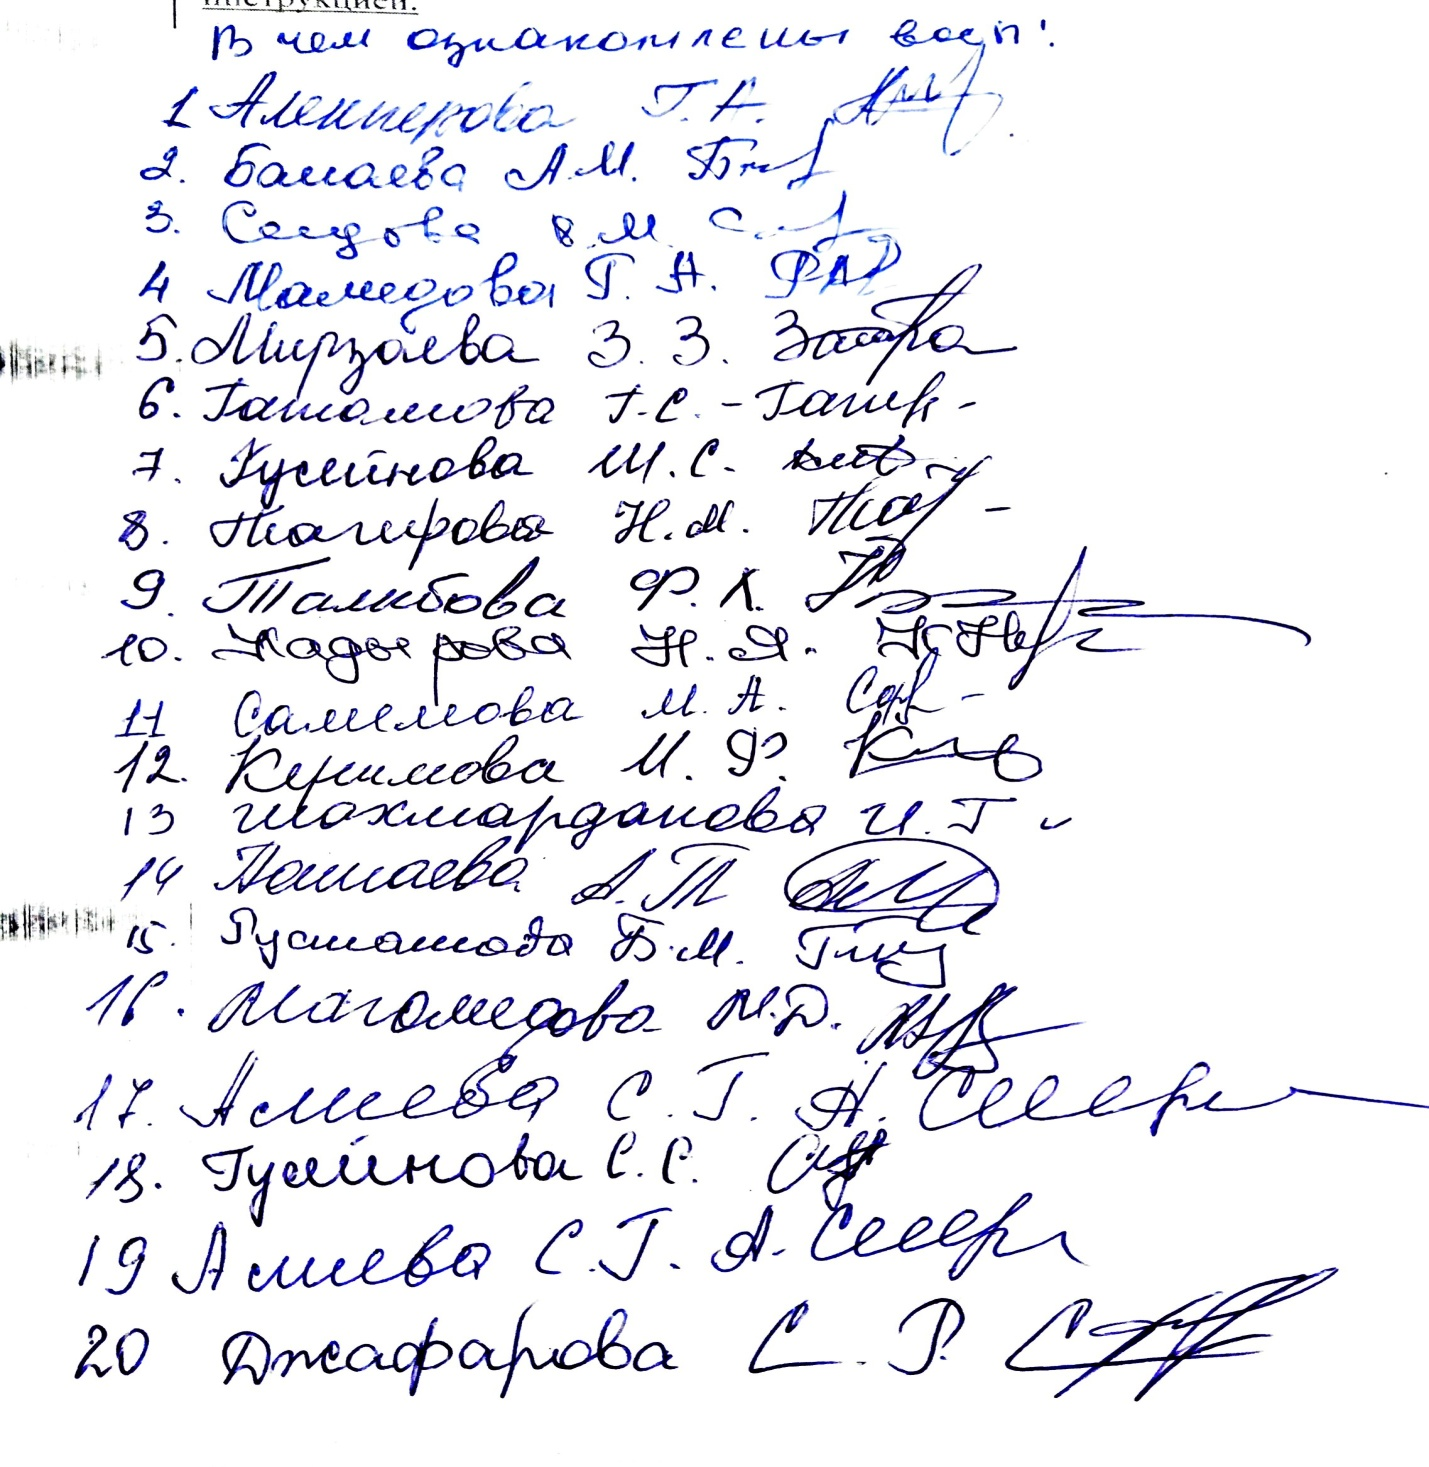 инструкцией.
В чем ознакомлены восп:
1 Алекперова Г. А.
2. Бамаева А.М.
3. Сеидова В.М.
4 Мамедова Г. Н.
5. Мирзаева З. З.
6. Гатамова Г.С.
7. Гусейнова Ш.С.
8. Тагирова Н.М.
9. Талибова Ф. К.
10. Кадырова Н. Я.
11 Самимова М. А.
12. Керимова И. Ф.
13 Шахмарданова И. Г
14 Намаева А.Т
15. Рустамова Б.М.
16. Магомедова М.D.
17. Алиева С. Г.
18. Гусейнова С. С.
19 Алиева С. Г.
20 Джафарова С. Р.